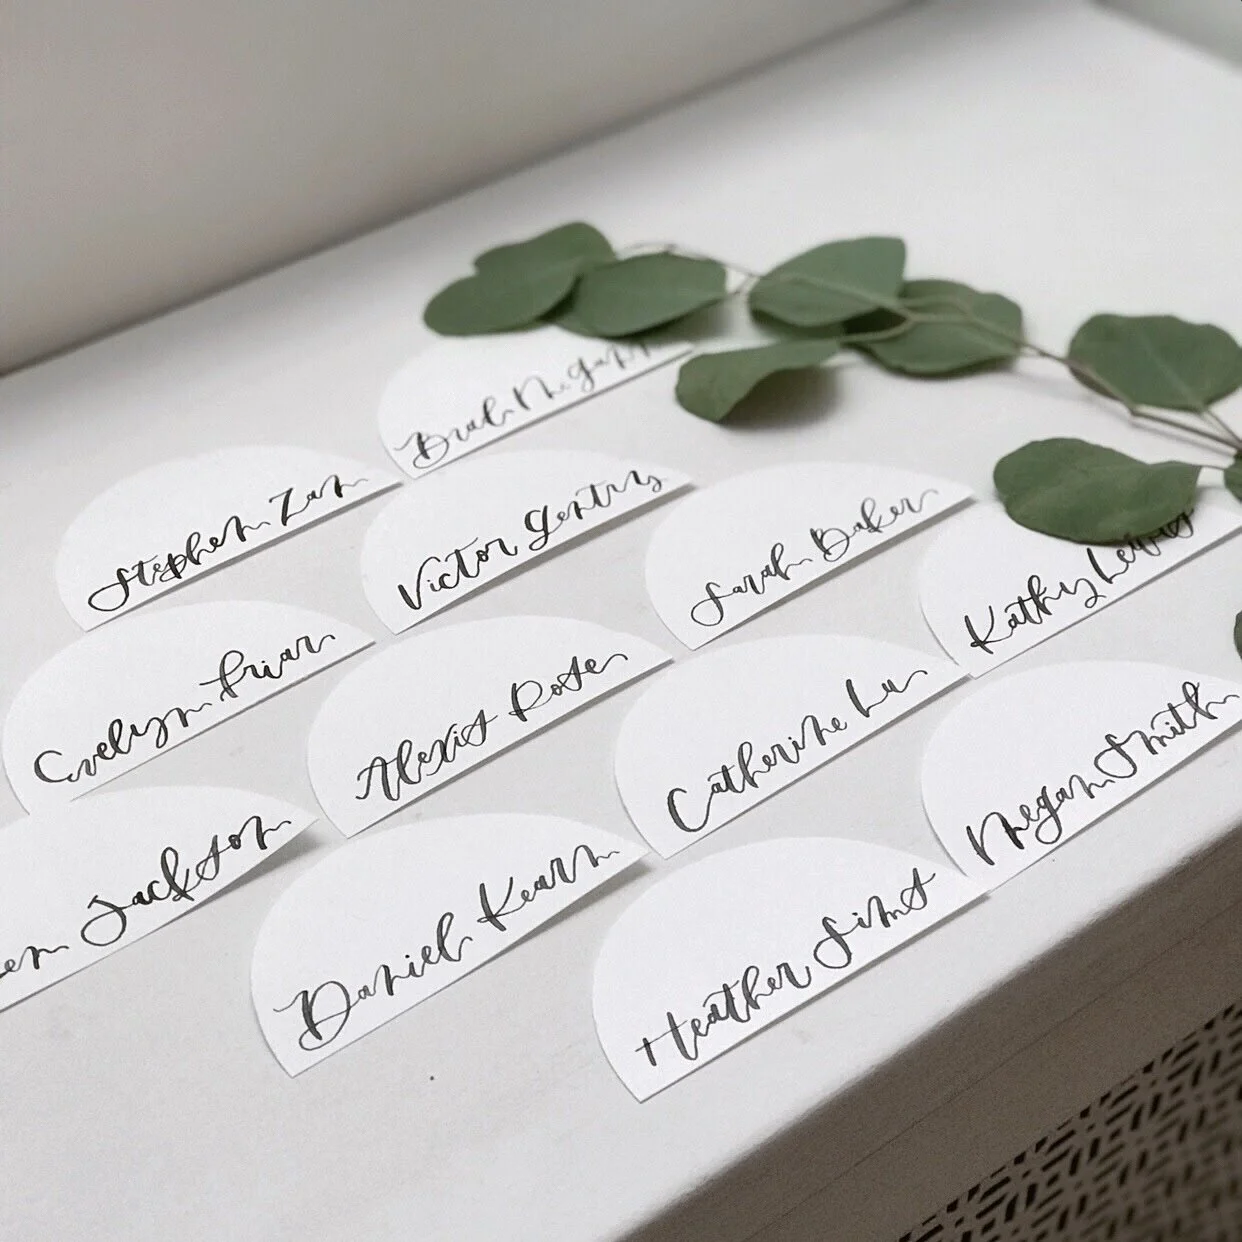 Brad
Stephen Zan
Victor Gentry
Sarah Baker
Kathy
Evelyn Friar
Alexis Rose
Catherine Lu
Megan Smith
Jackson
Daniel Kearn
Heather Sims